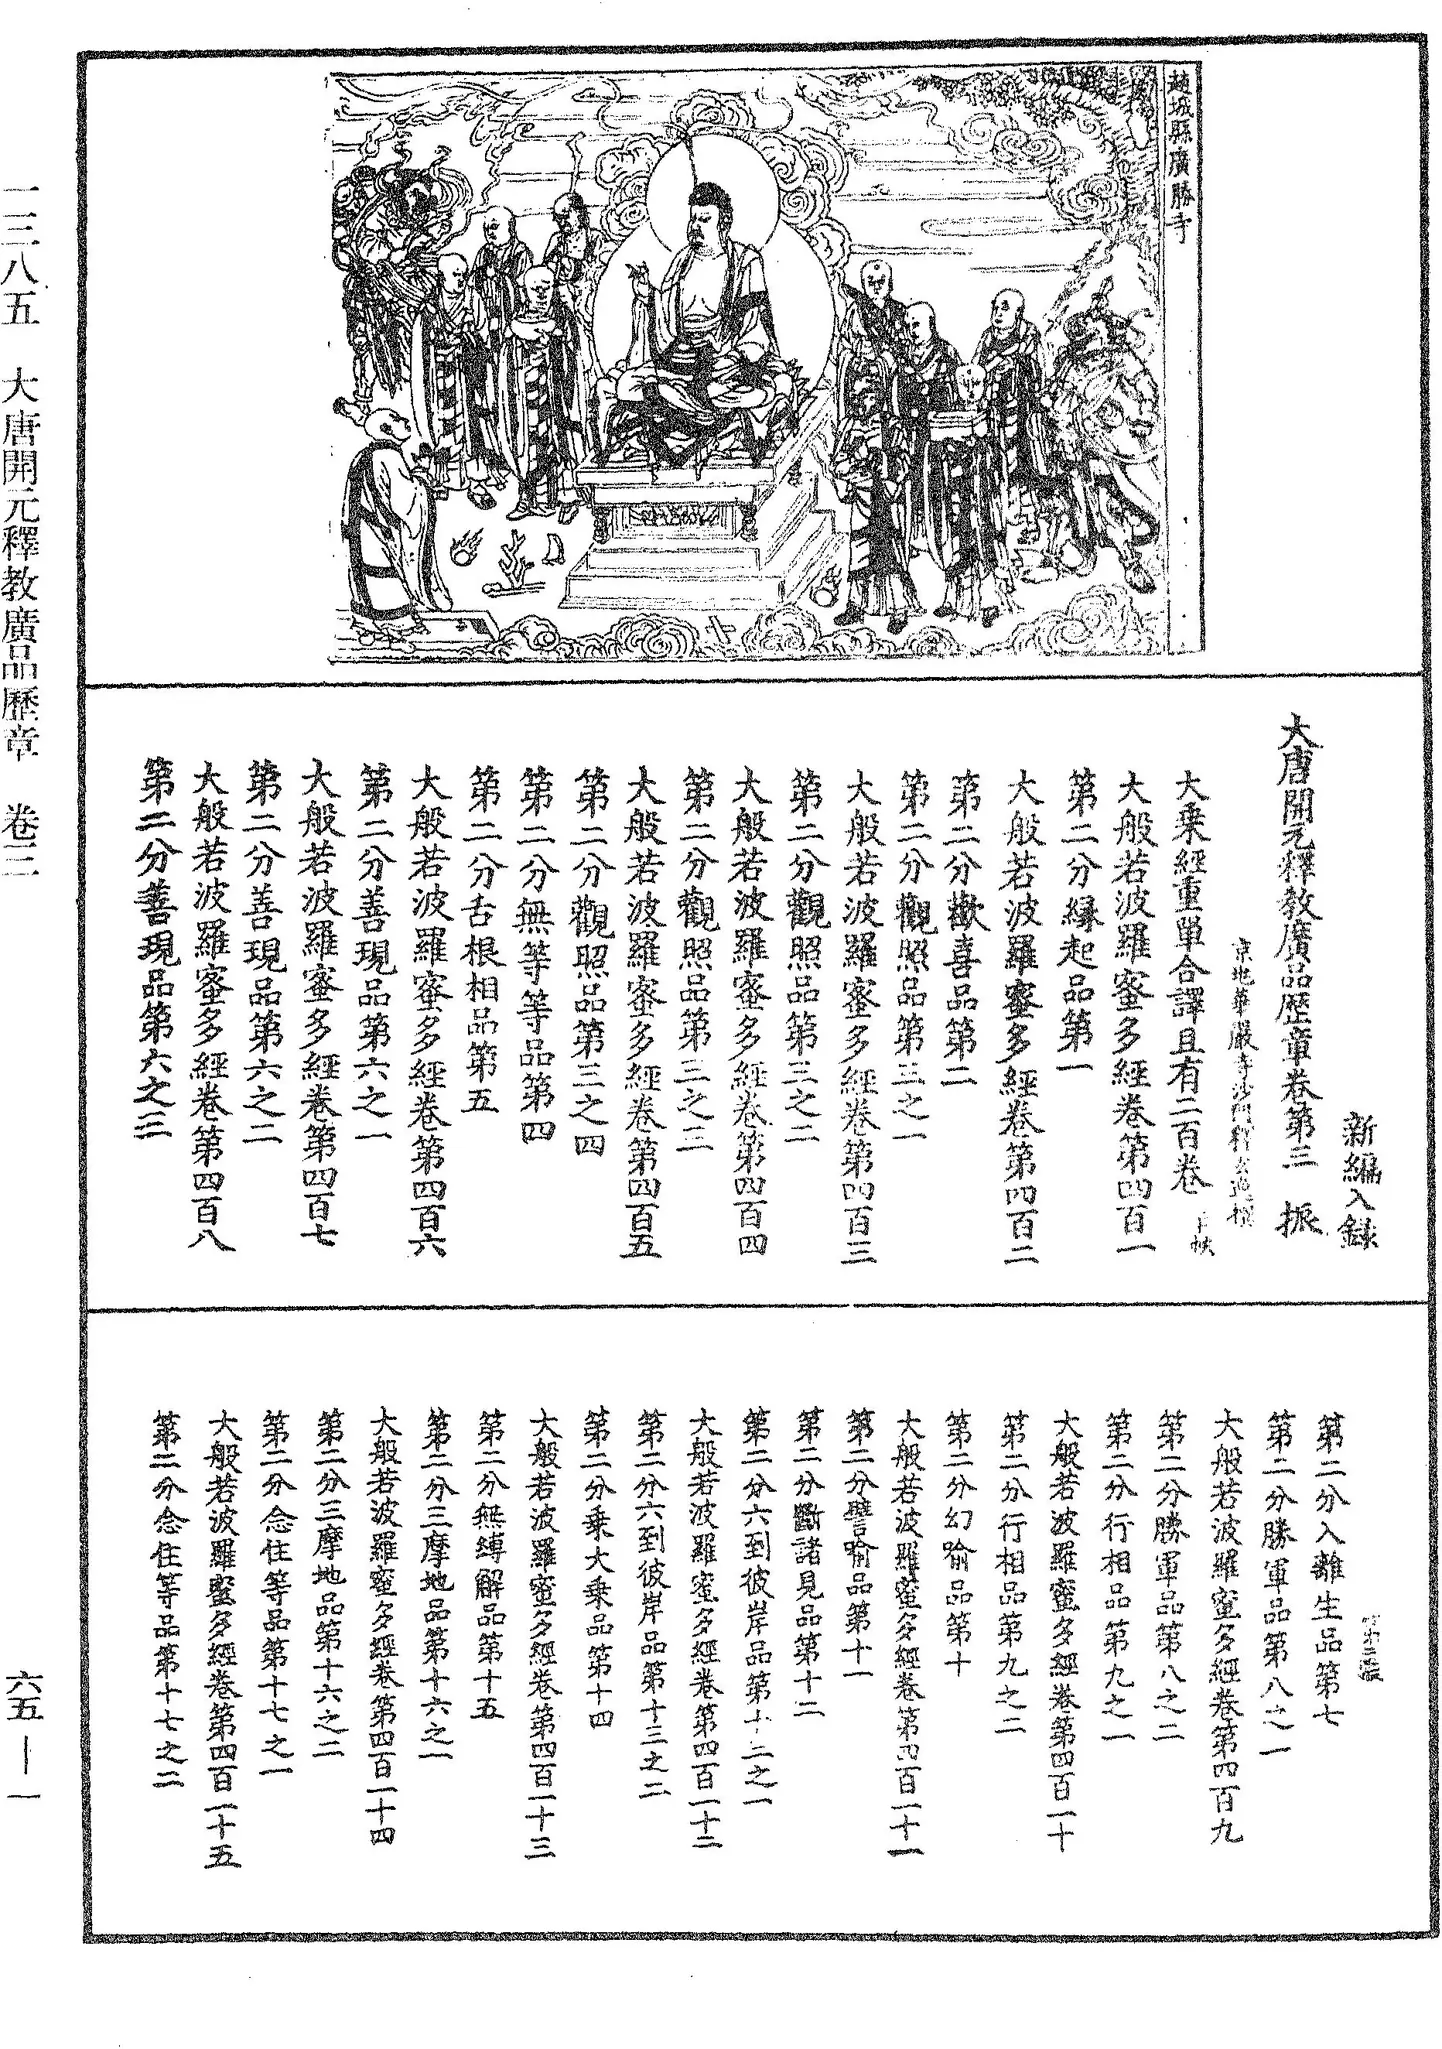 趙城縣廣勝寺
新編入錄
大唐開元釋教廣品歷章卷第三　振
京兆華嚴寺沙門釋玄逸撰
大乘經重單合譯且有二百卷
大般若波羅蜜多經卷第四百一
第二分緣起品第一
大般若波羅蜜多經卷第四百二
第二分歡喜品第二
第二分觀照品第三之一
大般若波羅蜜多經卷第四百三
第二分觀照品第三之二
大般若波羅蜜多經卷第四百四
第二分觀照品第三之三
大般若波羅蜜多經卷第四百五
第二分觀照品第三之四
第二分無等等品第四
第二分舌根相品第五
大般若波羅蜜多經卷第四百六
第二分善現品第六之一
大般若波羅蜜多經卷第四百七
第二分善現品第六之二
大般若波羅蜜多經卷第四百八
第二分善現品第六之三
第二分入離生品第七
第二分勝軍品第八之一
大般若波羅蜜多經卷第四百九
第二分勝軍品第八之二
第二分行相品第九之一
大般若波羅蜜多經卷第四百一十
第二分行相品第九之二
第二分幻喻品第十
大般若波羅蜜多經卷第四百一十一
第二分譬喻品第十一
第二分斷諸見品第十二
第二分六到彼岸品第十三之一
大般若波羅蜜多經卷第四百一十二
第二分六到彼岸品第十三之二
第二分乘大乘品第十四
大般若波羅蜜多經卷第四百一十三
第二分無縛解品第十五
第二分三摩地品第十六之一
大般若波羅蜜多經卷第四百一十四
第二分三摩地品第十六之二
第二分念住等品第十七之一
大般若波羅蜜多經卷第四百一十五
第二分念住等品第十七之二
一三八五　大唐開元釋教廣品歷章　卷三
六五—一